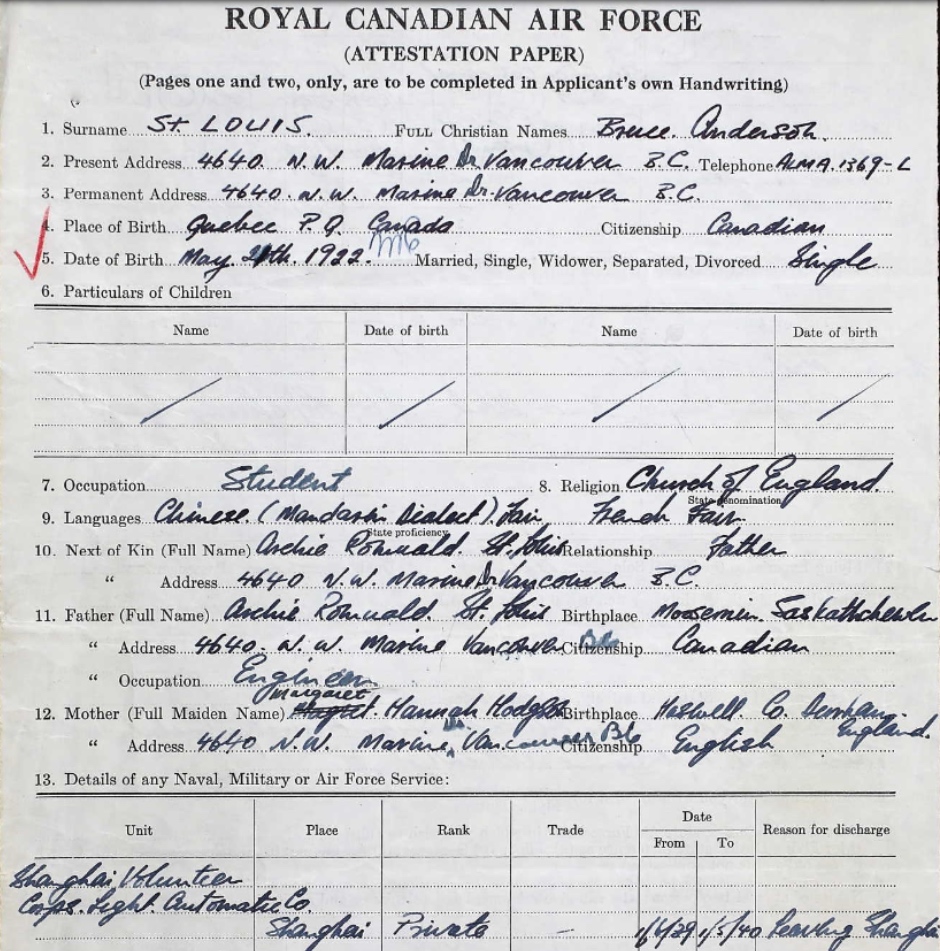 ROYAL CANADIAN AIR FORCE
(ATTESTATION PAPER)
(Pages one and two, only, are to be completed in Applicant's own Handwriting)
1. Surname St. LOUIS. FULL Christian Names Bruce. Anderson.
2. Present Address 4640. N.W. Marine Dr. Vancouver B.C. Telephone ALMA. 1369-L
3. Permanent Address 4640. N.W. Marine Dr. Vancouver B.C.
4. Place of Birth Quebec P.Q. Canada Citizenship Canadian
5. Date of Birth May. th. 1922. Married, Single, Widower, Separated, Divorced Single
6. Particulars of Children
Name Date of birth Name Date of birth
7. Occupation Student 8. Religion Church of England.
State denomination
9. Languages Chinese. (Mandarin Dialect) Fair French Fair
State proficiency
10. Next of Kin (Full Name) Archie Romuald. St. Louis Relationship Father
" Address 4640 N.W. Marine Dr Vancouver B.C.
11. Father (Full Name) Archie Romuald. St. Louis Birthplace Moosemin. Saskatchewan
" Address 4640. N.W. Marine Vancouver Bc Citizenship Canadian
" Occupation Engineer
Margaret
12. Mother (Full Maiden Name) Hannah Hodgson Birthplace Haswell Co. Durham.
England.
" Address 4640 N.W. Marine Dr. Vancouver Bc Citizenship English
13. Details of any Naval, Military or Air Force Service:
Unit Place Rank Trade Date Reason for discharge
From To
Shanghai Volunteer
Corps. Light. Automatic Co.
Shanghai Private – 1/5/40 Leaving Shangha